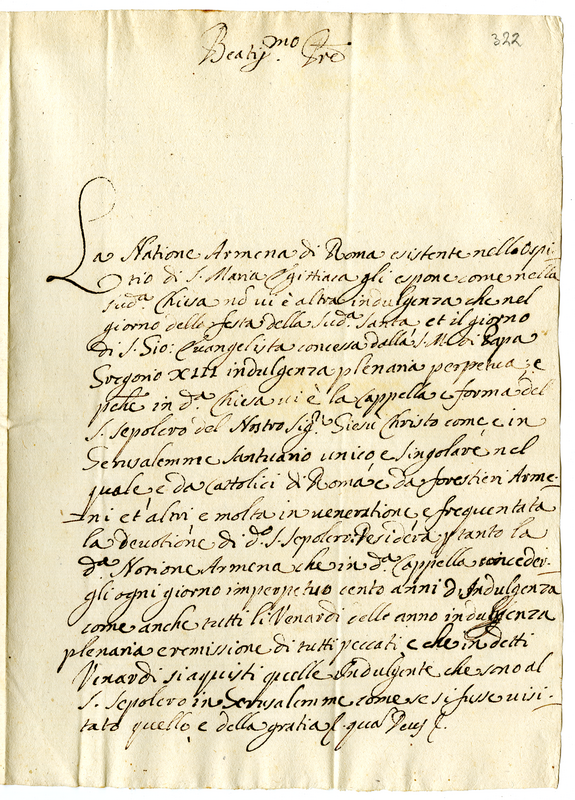 322
Beatiss.mo Pre
La Natione Armena di Roma esistente nello Ospi-
tio di S. Maria Egittiaca gli espone come nella
sud.a Chiesa nō vi è altra indulgenza che nel
giorno dello festa della Sud.a Santa et il giorno
di S. Gio: Evangelista concessa dalla S.M. di Papa
Gregorio XIII indulgenza plenaria perpetua; e
pche in d.a Chiesa vi è la Cappella e forma del
S. Sepolcro del Nostro Sig.r Giesù Christo come è in
Gerusalemme Santuario unico e singolare nel
quale e da Cattolici di Roma e da forestieri Arme-
ni et altri e molta in veneratione e frequentata
la devotione di d.o S. Sepolcro. Desidera ptanto la
d.a Natione Armena che in d.a Cappella conceder-
gli ogni giorno imperpetuo cento anni d'Indulgenza
come anche tutti li Venardi delle anno indulgenza
plenaria e remissione di tutti peccati, e che in detti
Venardi si aquisti quelle Indulgente che sono al
S. Sepolcro in Gerusalemme come se si fusse visi-
tato quello, e della gratia &. quas Deus &.